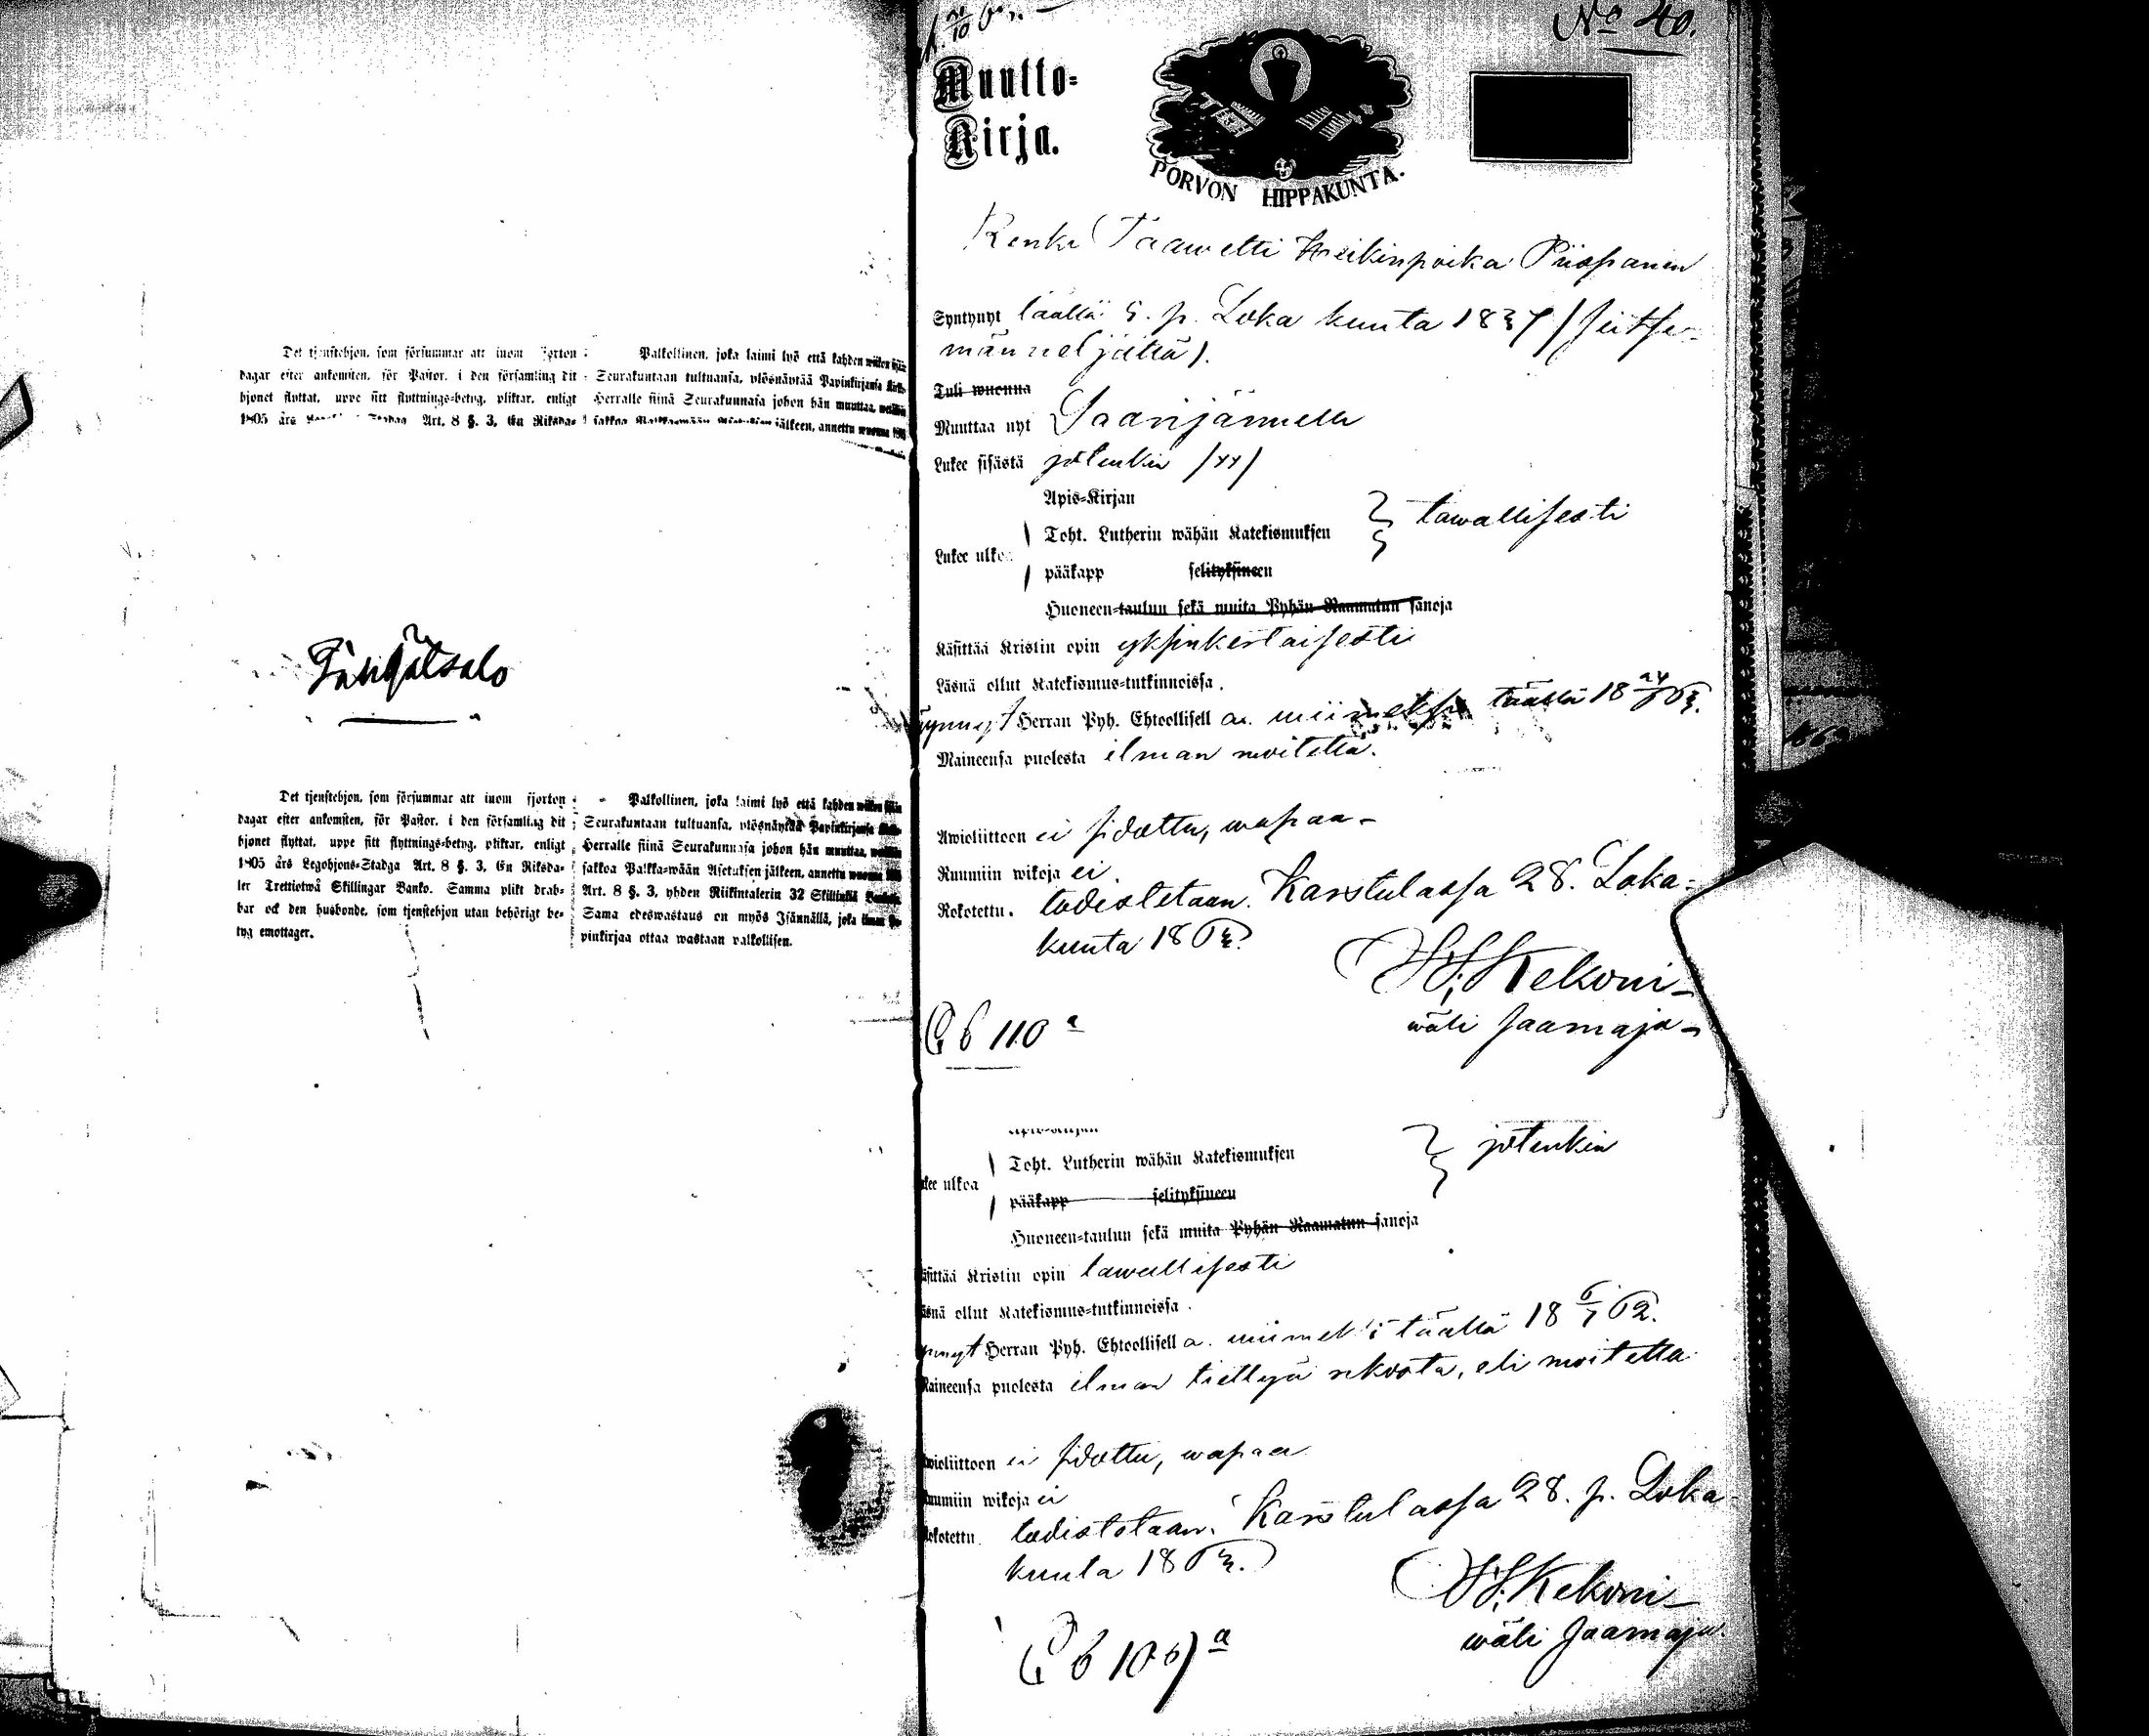 Det tjenstehjon, som försummar att inom fjorton
dagar efter ankomsten, för Pastor, i den församling dit
hjonet flyttat, uppe sitt flyttnings-betyg, pliktar, enligt
1805 års Stadga Art. 8 §. 3, En Riksda-
Palkollinen, joka laimi lyö että kahden wiikon
Seurakuntaan tultuansa, ylösnäyttää Papinkirjansa
Herralle siinä Seurakunnasa johon hän muuttaa,
sakkoa jälkeen, annettu wuonna
Det tjenstehjon, som försummar att inom fjorton
dagar efter ankomsten, för Pastor, i den församling dit
hjonet flyttat, uppe sitt flyttnings-betyg, pliktar, enligt
1805 års Legohjons-Stadga Art. 8 §. 3, En Riksda-
ler Trettiotwå Skillingar Banko. Samma plikt drab-
bar ock den husbonde, som tjenstehjon utan behörigt be-
tyg emottager.
Palkollinen, joka laimi lyö että kahden wiikon
Seurakuntaan tultuansa, ylösnäyttää Papinkirjansa
Herralle siinä Seurakunnasa johon hän muuttaa,
sakkoa Palkka-wään Asetuksen jälkeen, annettu wuonna
Art. 8 §. 3, yhden Riikintalerin 32 Skillinkiä
Sama edeswastaus on myös Isännällä, joka ilman Pa-
pinkirjaa ottaa wastaan palkollisen.
No 40.
Muutto-
Kirja.
PORVON HIPPAKUNTA.
Renki Taawetti Heikinpoika Piispanen
Syntynyt täällä 5. p. Loka kuuta 1837 /seitse-
män neljättä/.
Tuli wuonna
Muuttaa nyt Saarijärwelle
Lukee sisästä jotenkin /xx/
Apis-Kirjan
Toht. Lutherin wähän Katekismuksen tawallisesti
Lukee ulkoa
pääkapp selityksineen
Huoneen-taulun sekä muita Pyhän Raamatun sanoja
Käsittää Kristin opin yksinkertaisesti
Läsnä ollut Katekismus-tutkinnoissa.
Herran Pyh. Ehtoollisella wiimeksi täällä 18
Maineensa puolesta ilman moitetta.
Awioliittoon ei sidottu, wapaa -
Ruumiin wikoja ei
Rokotettu. todistetaan. Karstulassa 28. Loka-
kuuta 1863.
Kekoni
wäli saarnaja
110 a
Toht. Lutherin wähän Katekismuksen jotenkin
ulkoa
pääkapp selityksineen
Huoneen-taulun sekä muita Pyhän Raamatun sanoja
Kristin opin tawallisesti
ollut Katekismus-tutkinnoissa.
Herran Pyh. Ehtoollisella wiimeksi täällä 18 6/7 62.
Maineensa puolesta ilman tiettyä rikosta, eli moitetta
Awioliittoon ei sidottu, wapaa
Ruumiin wikoja ei
Rokotettu. todistetaan. Karstulassa 28. p. Loka-
kuuta 1863.
Kekoni
wäli saarnaja.